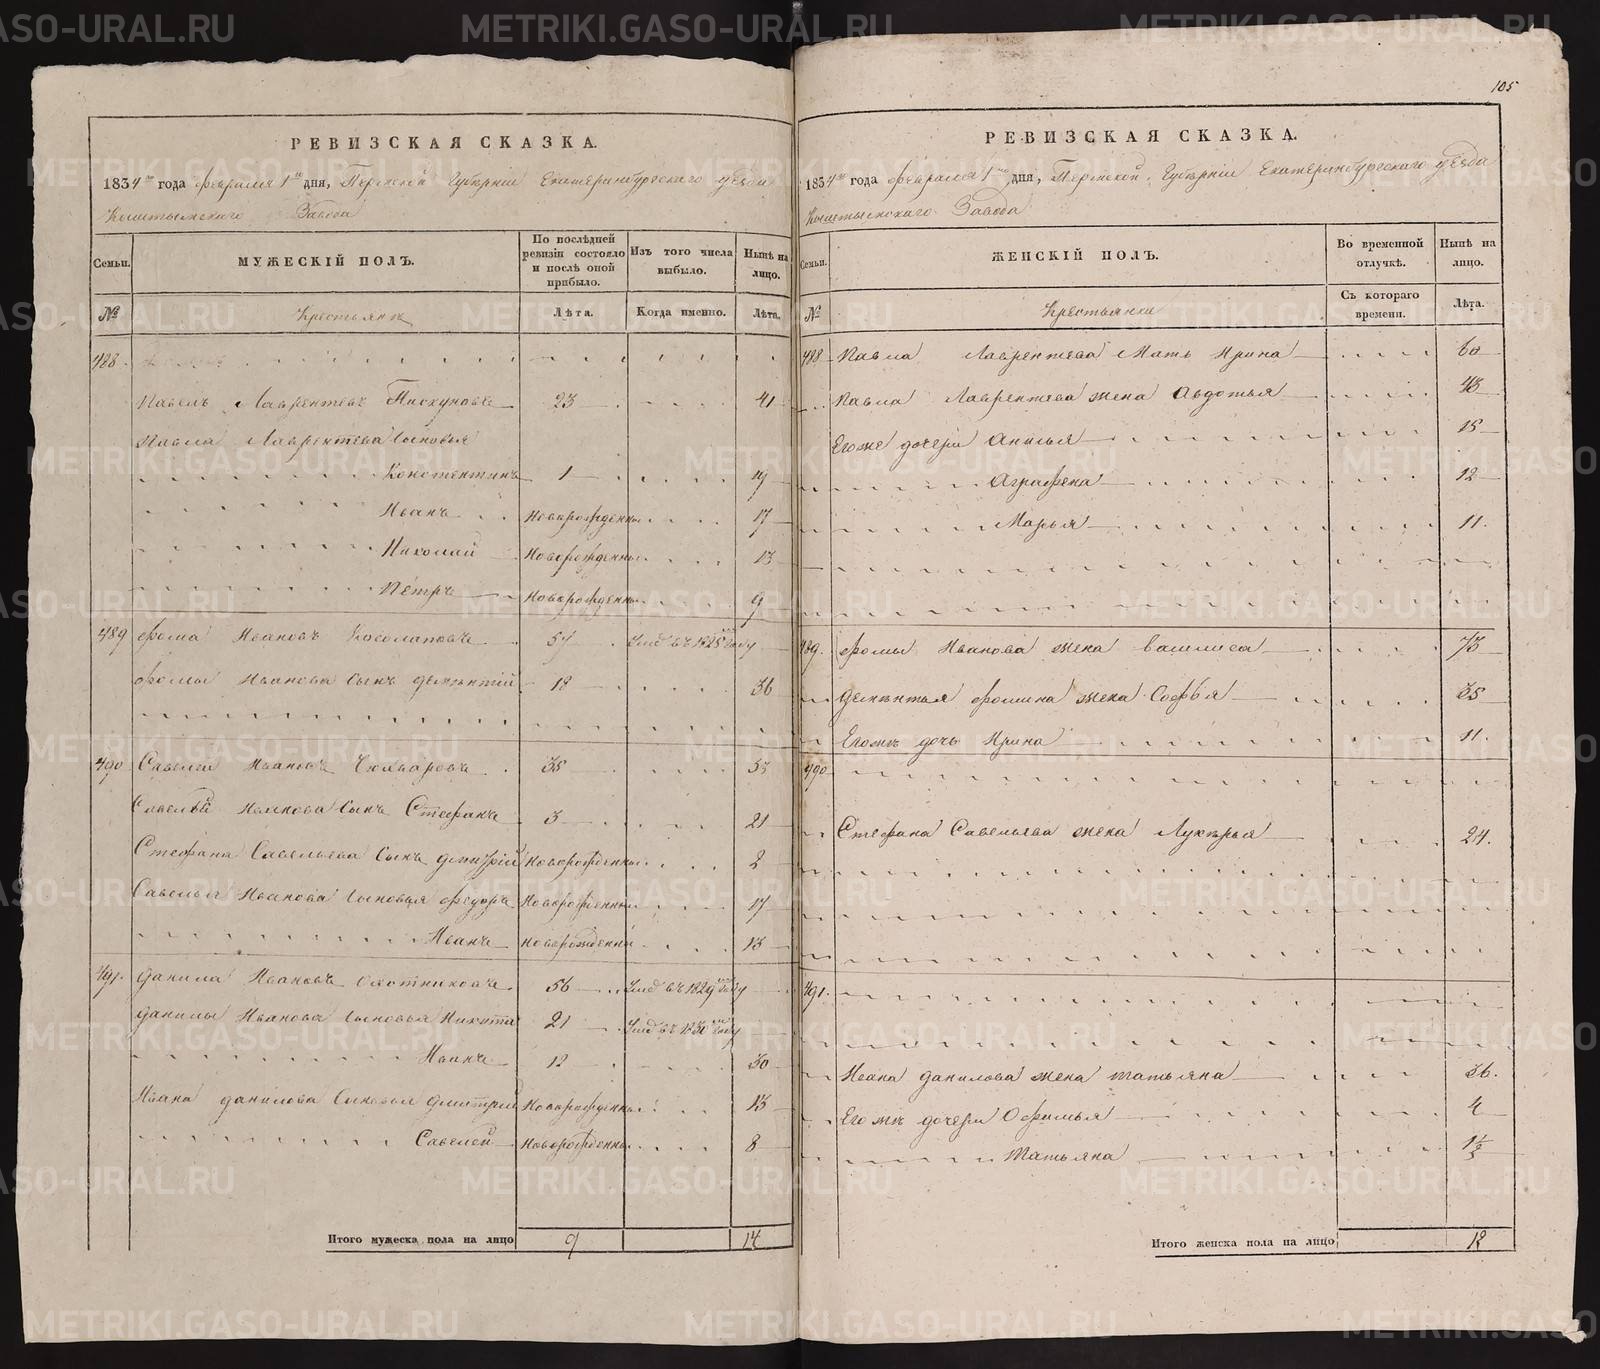 РЕВИЗСКАЯ СКАЗКА.
1834 го года февраля 1 го дня, Пермской Губерніи Екатеринбургскаго уѣзда
Кыштымскаго Завода
Семьи. МУЖЕСКІЙ ПОЛЪ. По послѣдней ревизіи состояло и послѣ оной прибыло. Изъ того числа выбыло. Нынѣ на лицо.
№ Крестьянъ Лѣта. Когда именно. Лѣта.
488.
Павелъ Лаврентьевъ Пискуновъ 23 41
Павла Лаврентьева сыновья
Константинъ 1 19
Иванъ Новорожденны 17
Николай Новорожденны 13
Петръ Новорожденны 9
489 Фома Ивановъ Косолаповъ 57 Умер въ 1825 году
Фомы Иванова сынъ Дементий 18 36
490 Савелей Ивановъ 35 53
Савелья Иванова сынъ Стефанъ 3 21
Стефана Савельева сынъ Дмитрій Новорожденны 2
Савелья Иванова сыновья Федоръ Новорожденны 17
Иванъ Новорожденны 13
491. Данила Ивановъ Охотниковъ 56 Умер въ 1829 году
Данилы Иванова сыновья Никита 21 Умер въ 1830 году
Иванъ 12 30
Ивана Данилова сыновья Дмитрий Новорожденны 13
Савелей Новорожденны 8
Итого мужеска пола на лицо 9 14
105
РЕВИЗСКАЯ СКАЗКА.
1834 го года февраля 1 го дня, Пермской Губерніи Екатеринбургскаго уѣзда
Кыштымскаго Завода
Семьи. ЖЕНСКІЙ ПОЛЪ. Во временной отлучкѣ. Нынѣ на лицо.
№ Крестьянки Съ котораго времени. Лѣта.
488 Павла Лаврентьева Мать Ирина 60
Павла Лаврентьева жена Авдотья 43
Его же дочери Анисья 15
Аграфена 12
Марья 11.
489. Фомы Иванова жена Василиса 73
Дементья Фомина жена Софья 35
Его же дочь Ирина 11.
490
Стефана Савельева жена Лукерья 24.
491.
Ивана Данилова жена Татьяна 36.
Его же дочери Офимья 4
Татьяна 1½
Итого женска пола на лицо 12
METRIKI.GASO-URAL.RU